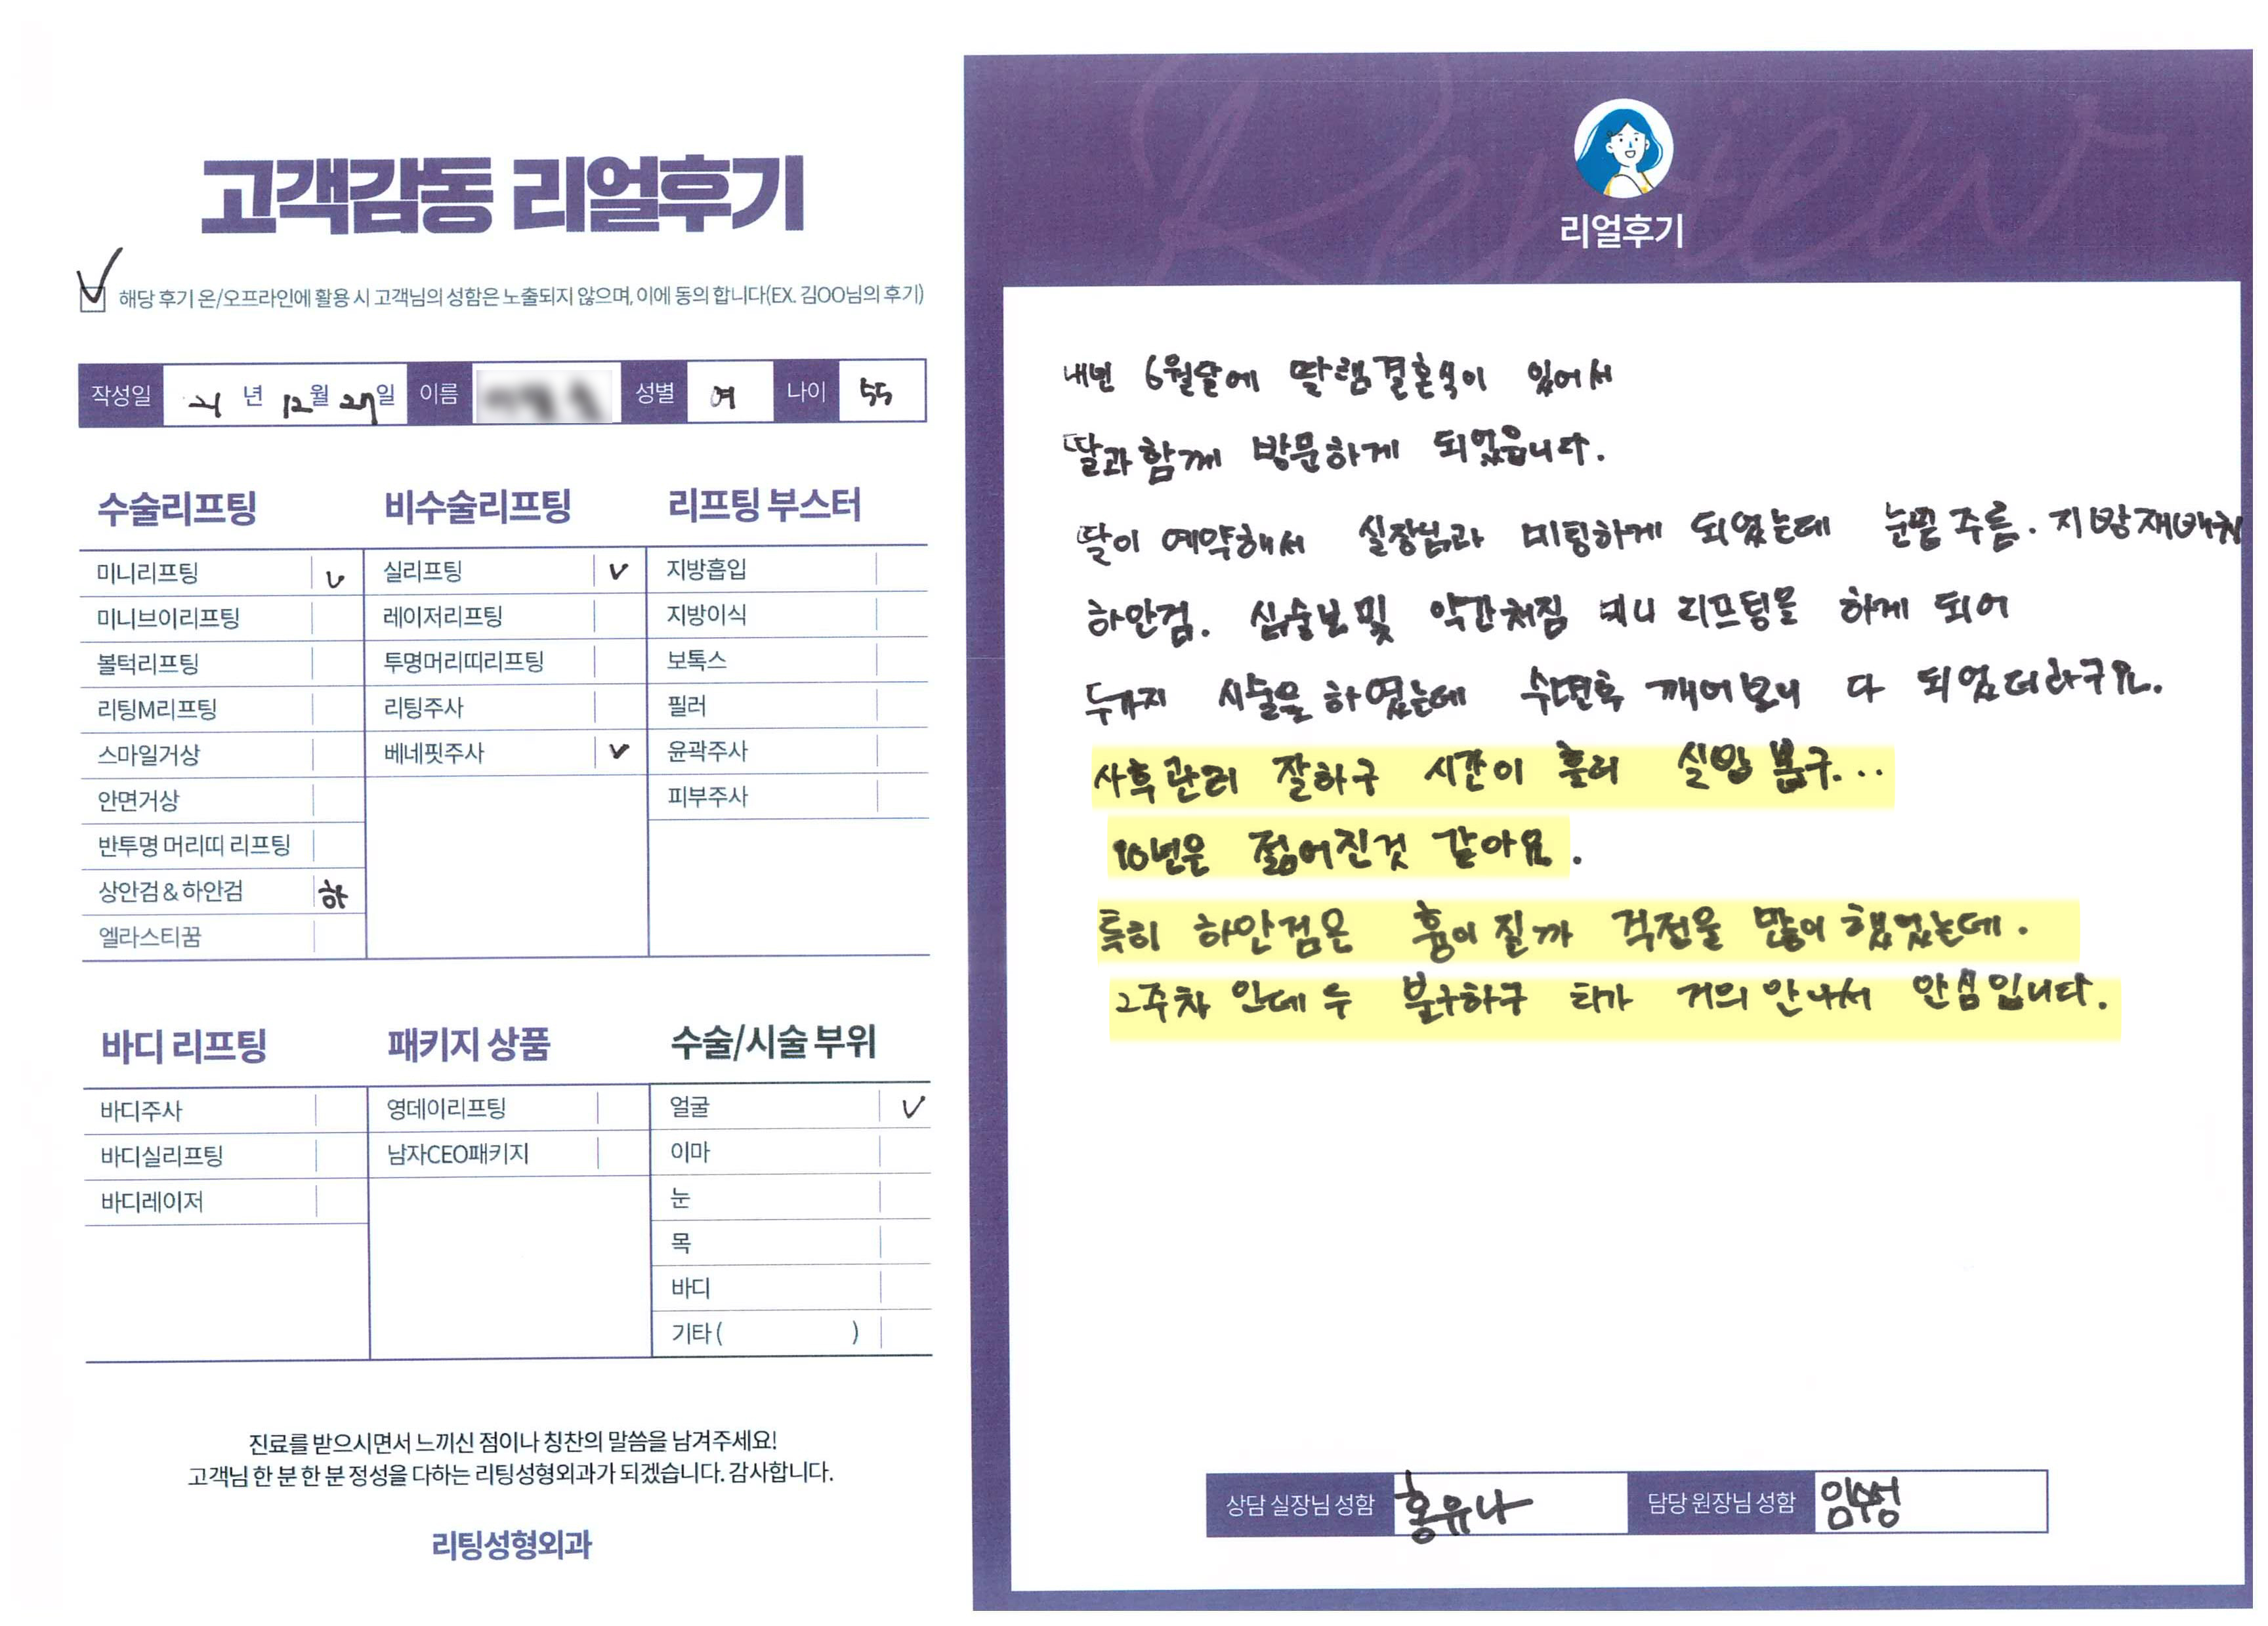 고객감동 리얼후기
해당 후기 온/오프라인에 활용 시 고객님의 성함은 노출되지 않으며, 이에 동의 합니다(EX. 김OO님의 후기)
작성일 21 년 12 월 27 일 이름 성별 여 나이 55
수술리프팅
미니리프팅
미니브이리프팅
볼턱리프팅
리팅M리프팅
스마일거상
안면거상
반투명 머리띠 리프팅
상안검 & 하안검 하
엘라스티꿈
비수술리프팅
실리프팅
레이저리프팅
투명머리띠리프팅
리팅주사
베네핏주사
리프팅 부스터
지방흡입
지방이식
보톡스
필러
윤곽주사
피부주사
바디 리프팅
바디주사
바디실리프팅
바디레이저
패키지 상품
영데이리프팅
남자CEO패키지
수술/시술 부위
얼굴
이마
눈
목
바디
기타 ( )
진료를 받으시면서 느끼신 점이나 칭찬의 말씀을 남겨주세요!
고객님 한 분 한 분 정성을 다하는 리팅성형외과가 되겠습니다. 감사합니다.
리팅성형외과
Review
리얼후기
내년 6월달에 딸램결혼식이 있어서
딸과 함께 방문하게 되었읍니다.
딸이 예약해서 실장님과 미팅하게 되었는데 눈밑 주름. 지방재배치
하안검. 심술보 및 약간처짐 미니 리프팅을 하게 되어
두가지 시술을 하였는데 수면후 깨어보니 다 되었더라구요.
사후관리 잘하구 시간이 흘러 실밥 뽑구...
10년은 젊어진것 같아요.
특히 하안검은 흉이 질까 걱정을 많이 했었는데.
2주차 인데 두 불구하구 티가 거의 안나서 안심입니다.
상담 실장님 성함 홍유나 담당 원장님 성함